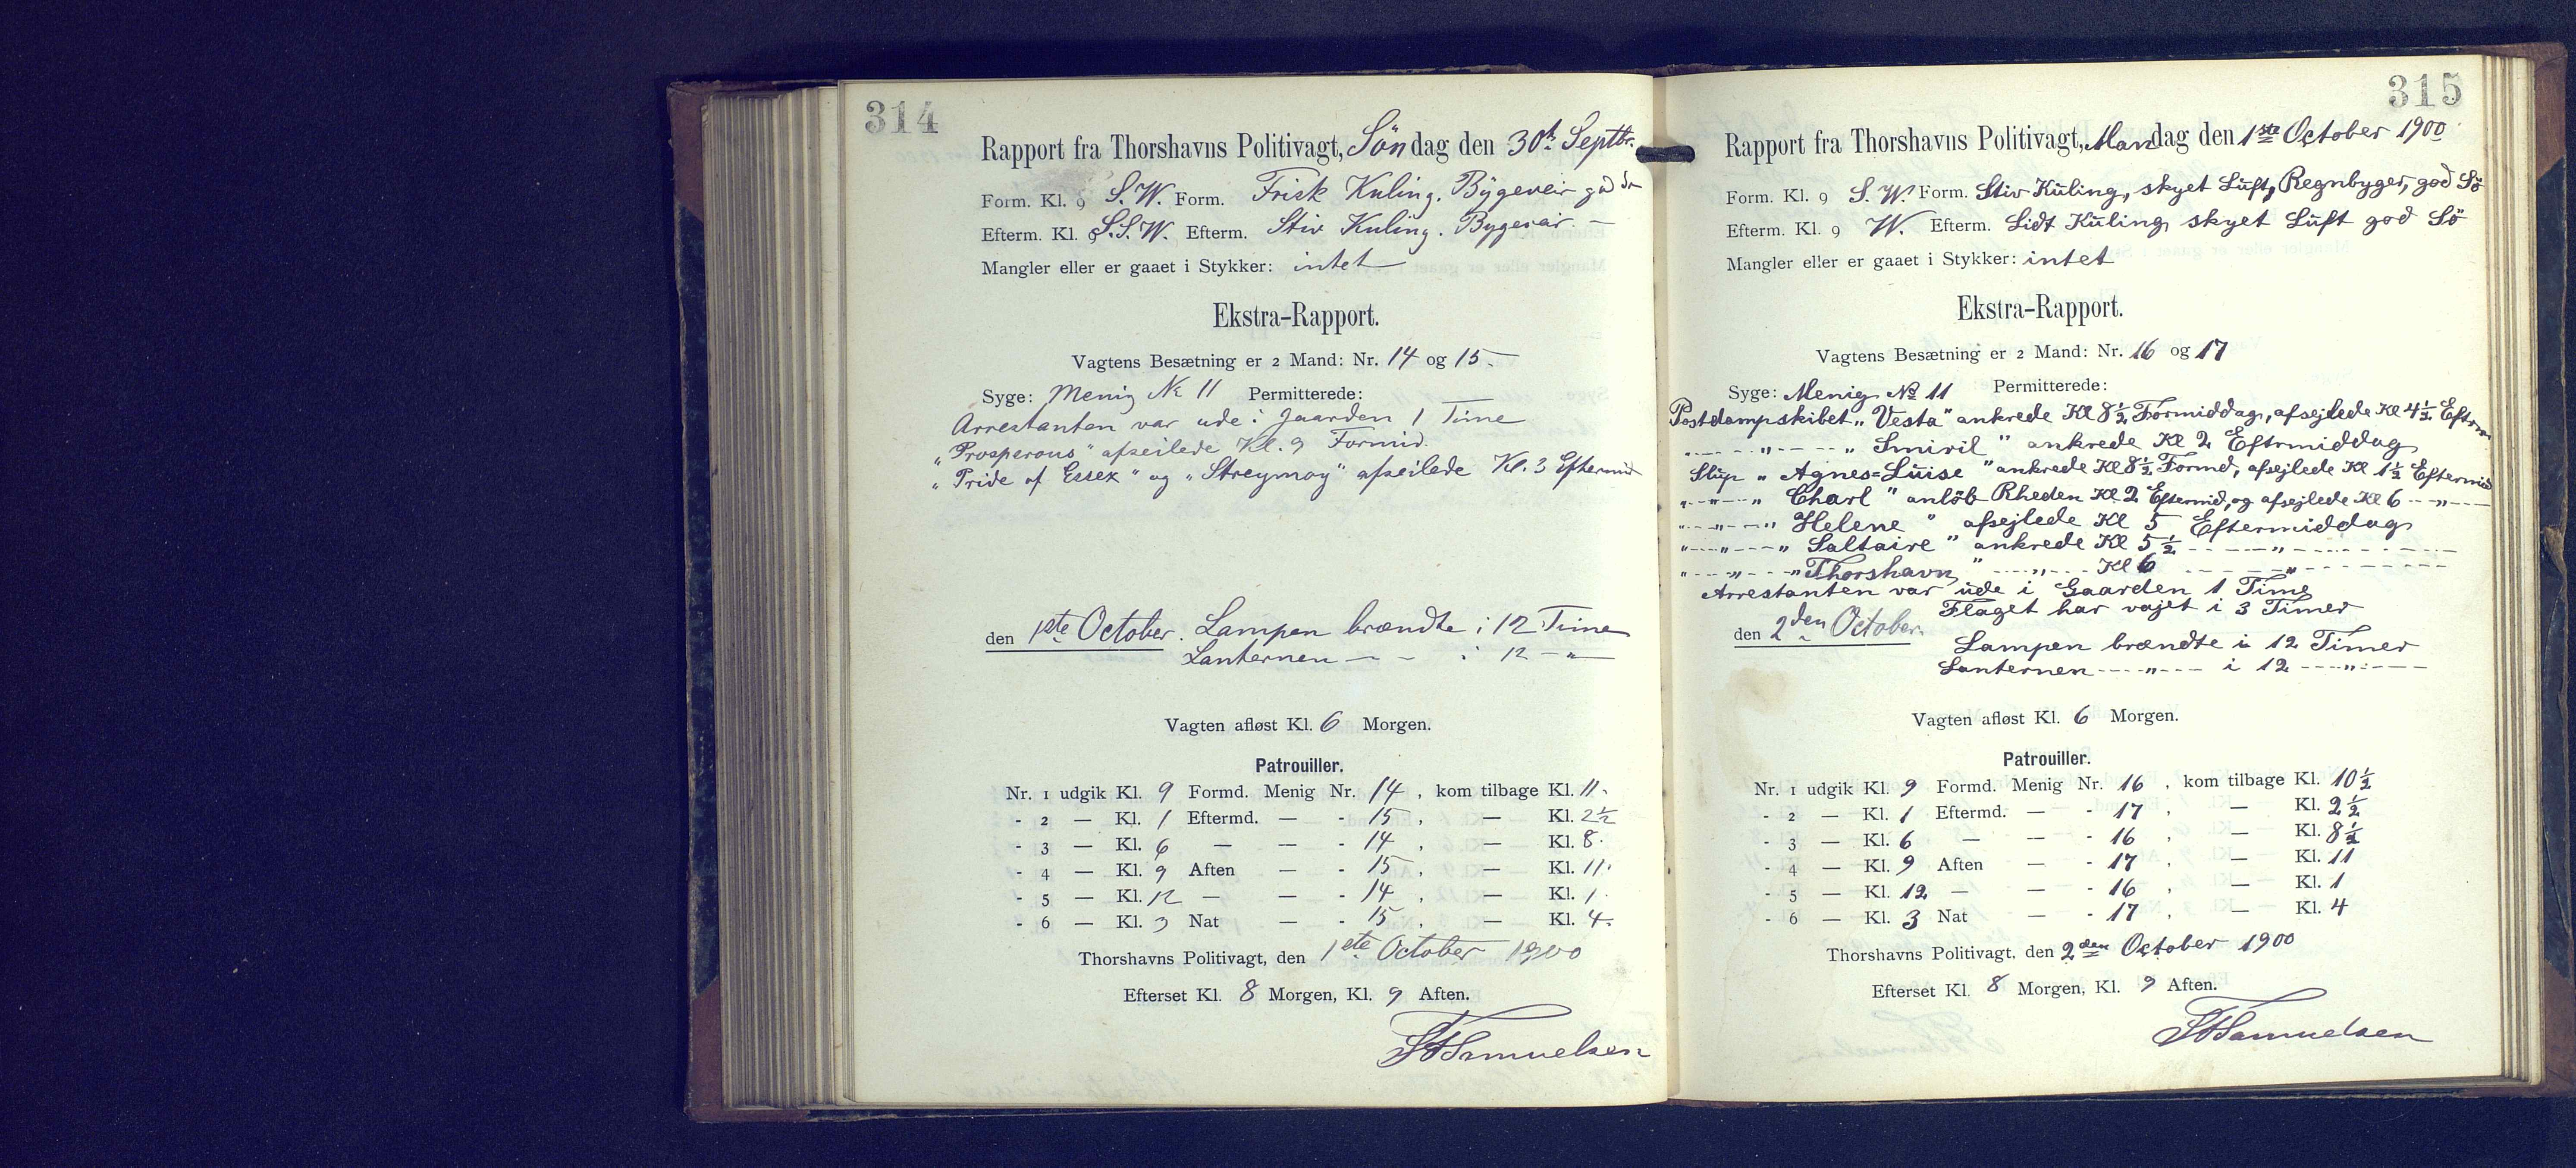 314
Rapport fra Thorshavns Politivagt, Søndag den 30te Septbr.
Form. Kl. 9 S.W. Form. Frisk Kuling. Bygeveir god Sø
Efterm. Kl. 9 S.S.W. Efterm. Stiv Kuling. Bygevair. —
Mangler eller er gaaet i Stykker: intet
Ekstra-Rapport.
Vagtens Besætning er 2 Mand: Nr. 14 og 15.
Syge: Menig № 11 Permitterede:
Arrestanten var ude i Gaarden 1 Time
„Prosperous" afseilede Kl. 9 Formid.
„Pride of Essex" og „Streymoy" afseilede Kl. 3 Eftermid
den 1ste October. Lampen brændte i 12 Time
Lanternen — - i 12 — „ —
Vagten afløst Kl. 6 Morgen.
Patrouiller.
Nr. 1 udgik Kl. 9 Formd. Menig Nr. 14, kom tilbage Kl. 11.
- 2 — Kl. 1 Eftermd. — - 15, — Kl. 2½
- 3 — Kl. 6 — — - 14, — Kl. 8.
- 4 — Kl. 9 Aften — - 15, — Kl. 11.
- 5 — Kl. 12 — — - 14, — Kl. 1.
- 6 — Kl. 3 Nat — - 15, — Kl. 4.
Thorshavns Politivagt, den 1ste October 1900
Efterset Kl. 8 Morgen, Kl. 9 Aften.
Samuelsen
315
Rapport fra Thorshavns Politivagt, Mandag den 1ste October 1900
Form. Kl. 9 S.W. Form. Stiv Kuling, skyet Luft, Regnbyger, god Sö
Efterm. Kl. 9 W. Efterm. Lidt Kuling, skyet Luft god Sö
Mangler eller er gaaet i Stykker: intet
Ekstra-Rapport.
Vagtens Besætning er 2 Mand: Nr. 16 og 17
Syge: Menig № 11 Permitterede:
Postdampskibet „Vesta" ankrede Kl 8½ Formiddag, afsejlede Kl 4½ Efterm
„ --- „ --- „ Smiril" ankrede Kl 2 Eftrmiddag
Slup „Agnes=Luise" ankrede Kl 8½ Formd, afsejlede Kl 1½ Eftermid
„ --- „ --- „ Charl" anlöb Rheden Kl 2 Eftermid, og afsejlede Kl 6 -- „ ---
„ --- „ --- „ Helene" afsejlede Kl 5 Eftermiddag
„ --- „ --- „ Saltaire" ankrede Kl 5½ --- „ ---
„ --- „ --- „ Thorshavn" --- „ --- Kl 6 --- „ ---
Arrestanten var ude i Gaarden 1 Time
Flaget har vajet i 3 Timer
den 2den October.
Lampen brændte i 12 Timer
Lanternen --- „ --- i 12 --- „ ---
Vagten afløst Kl. 6 Morgen.
Patrouiller.
Nr. 1 udgik Kl. 9 Formd. Menig Nr. 16, kom tilbage Kl. 10½
- 2 — Kl. 1 Eftermd. — - 17, — Kl. 2½
- 3 — Kl. 6 — — - 16, — Kl. 8½
- 4 — Kl. 9 Aften — - 17, — Kl. 11
- 5 — Kl. 12 — — - 16, — Kl. 1
- 6 — Kl. 3 Nat — - 17, — Kl. 4
Thorshavns Politivagt, den 2den October 1900
Efterset Kl. 8 Morgen, Kl. 9 Aften.
Samuelsen